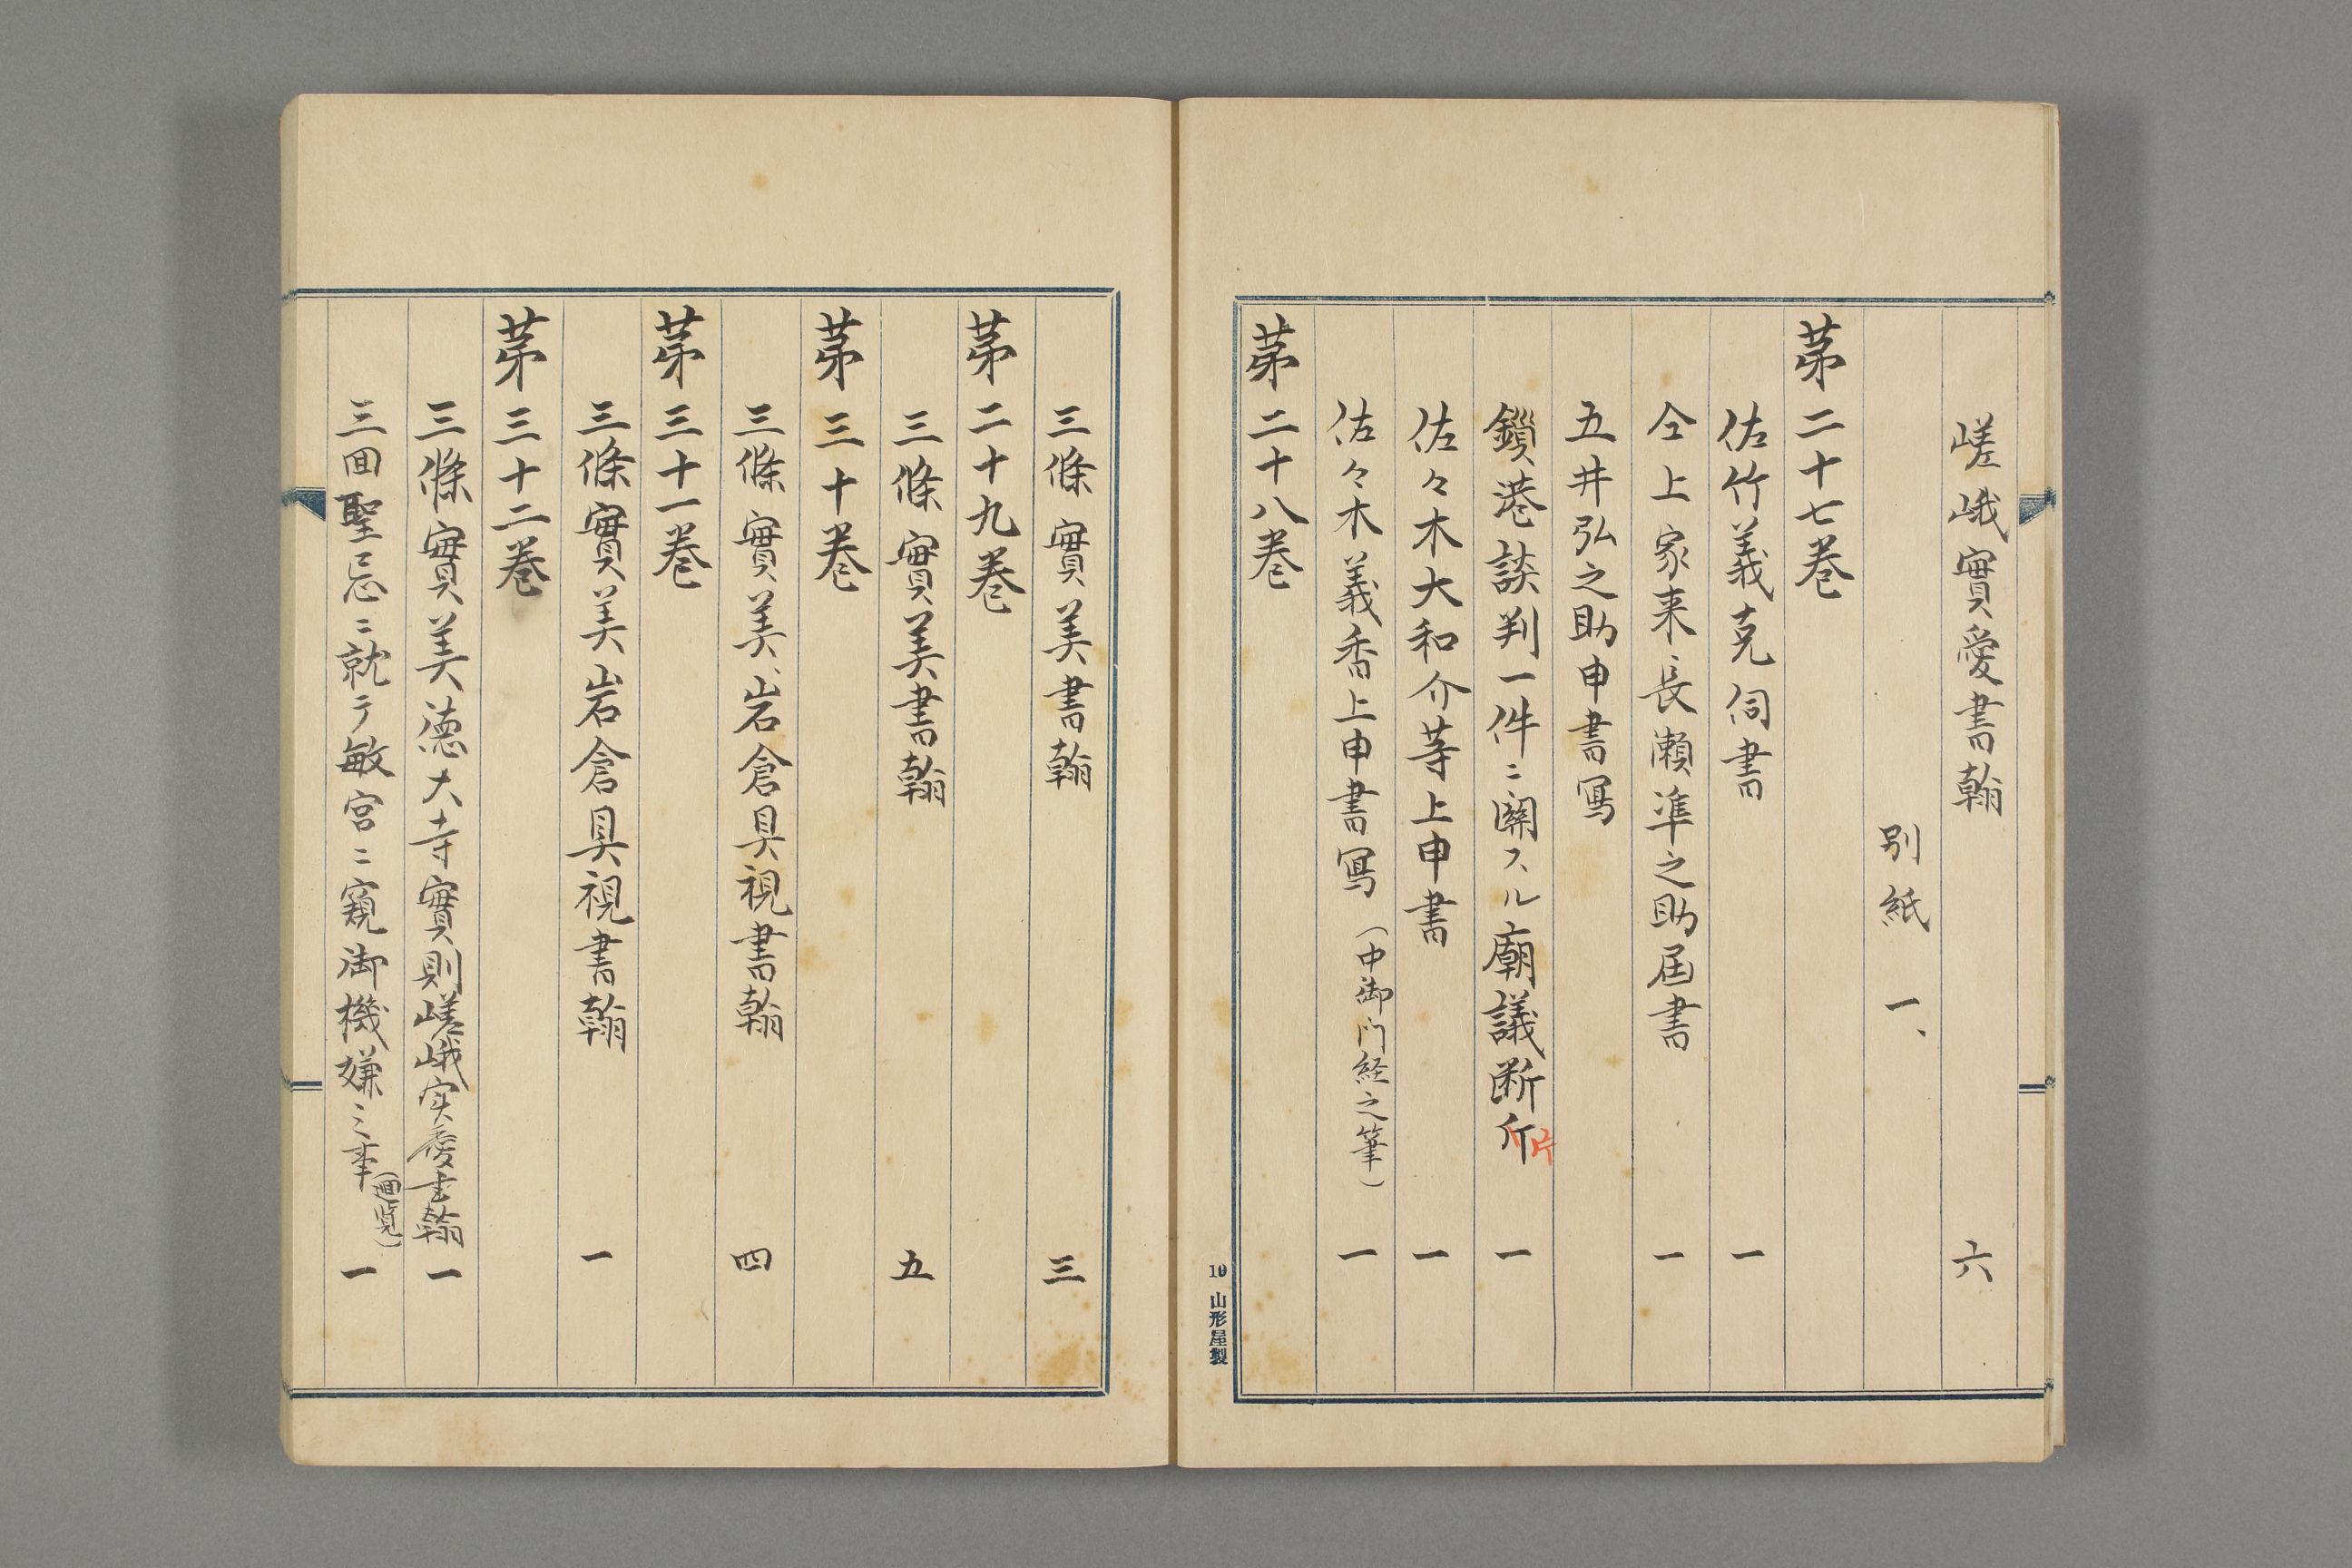 嵯峨實愛書翰 六
別紙 一、
苐二十七巻
佐竹義克伺書 一
仝上家来長瀬凖之助届書 一
五井弘之助申書寫
鎖港談判一件ニ関スル廟議断斤片 一
佐々木大和介䓁上申書 一
佐々木義香上申書寫（中御門経之筆） 一
苐二十八巻
10 山形屋製
三條實美書翰 三
苐二十九巻
三條實美書翰 五
苐三十巻
三條實美、岩倉具視書翰 四
苐三十一巻
三條實美岩倉具視書翰 一
苐三十二巻
三條實美徳大寺實則嵯峨实愛書翰 一
三回聖忌ニ就テ敏宮ニ窺御機嫌ミ事（回覧） 一